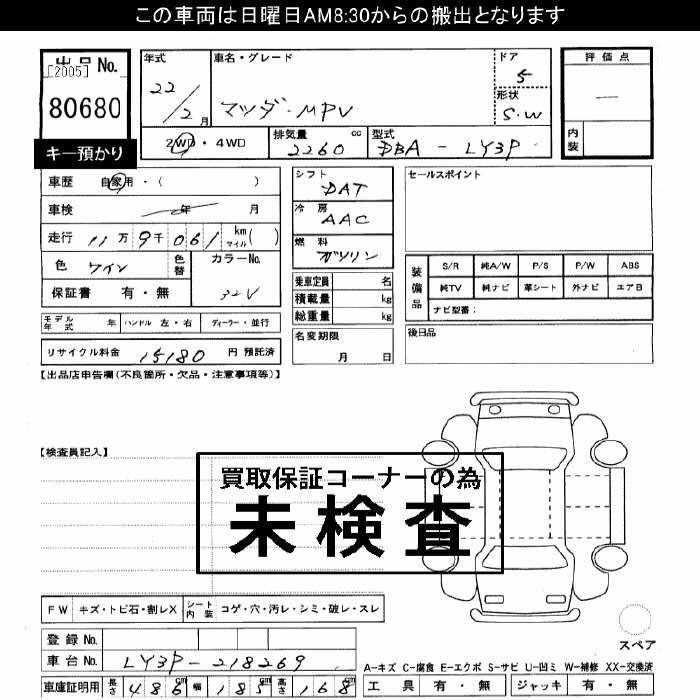 この車両は日曜日AM8:30からの搬出となります
出品No.
[2005]
80680
キー預かり
年式
22/2月
車名・グレード
マツダ・MPV
ドア
5
形状
S.W
評価点
—
内装
2WD・4WD
排気量 cc
2260
型式
DBA - LY3P
車歴 自家用・( )
車検 年 月
走行 11万9千061 km マイル ( )
色 ワイン
色替
カラーNo.
32V
保証書 有・無
シフト
DAT
冷房
AAC
燃料
ガソリン
乗車定員 名
積載量 kg
総重量 kg
名変期限
月 日
セールスポイント
装備品
S/R 純A/W P/S P/W ABS
純TV 純ナビ 革シート 外ナビ エアB
ナビ型番:
後日品
モデル年式 年 ハンドル 左・右 ディーラー・並行
リサイクル料金 15180 円 預託済
【出品店申告欄(不良箇所・欠品・注意事項等)】
【検査員記入】
買取保証コーナーの為
未検査
FW キズ・トビ石・割レX シート内装 コゲ・穴・汚レ・シミ・破レ・スレ
登録No.
車台No. LY3P-218269
車庫証明用 長さ 486cm 幅 185cm 高さ 168cm
スペア
A-キズ C-腐食 E-エクボ S-サビ U-凹ミ W-補修 XX-交換済
工具 有・無 ジャッキ 有・無